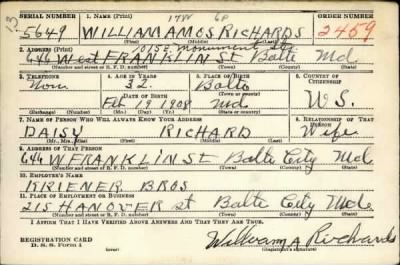 17W 6P
SERIAL NUMBER 1. NAME (Print) ORDER NUMBER
13 5649 WILLIAM AMOS RICHARDS 2459
(First) (Middle) (Last)
2. ADDRESS (Print) 1015 E. Monument St
646 West FRANKLIN ST Balto Md.
(Number and street or R. F. D. number) (Town) (County) (State)
3. TELEPHONE 4. AGE IN YEARS 5. PLACE OF BIRTH 6. COUNTRY OF CITIZENSHIP
32. Balto
DATE OF BIRTH
Feb 19 1908 Md. U.S.
(Exchange) (Number) (Mo.) (Day) (Yr.) (State or country)
7. NAME OF PERSON WHO WILL ALWAYS KNOW YOUR ADDRESS 8. RELATIONSHIP OF THAT PERSON
DAISY RICHARD Wife
(Mr., Mrs., Miss) (First) (Middle) (Last)
9. ADDRESS OF THAT PERSON
646 W FRANKLIN St Balto City Md.
(Number and street or R. F. D. number) (Town) (County) (State)
10. EMPLOYER'S NAME
KRIENER BROS
11. PLACE OF EMPLOYMENT OR BUSINESS
215 HANOVER st Balto City Md.
(Number and street or R. F. D. number) (Town) (County) (State)
I AFFIRM THAT I HAVE VERIFIED ABOVE ANSWERS AND THAT THEY ARE TRUE.
REGISTRATION CARD
D. S. S. Form 1
William A Richards